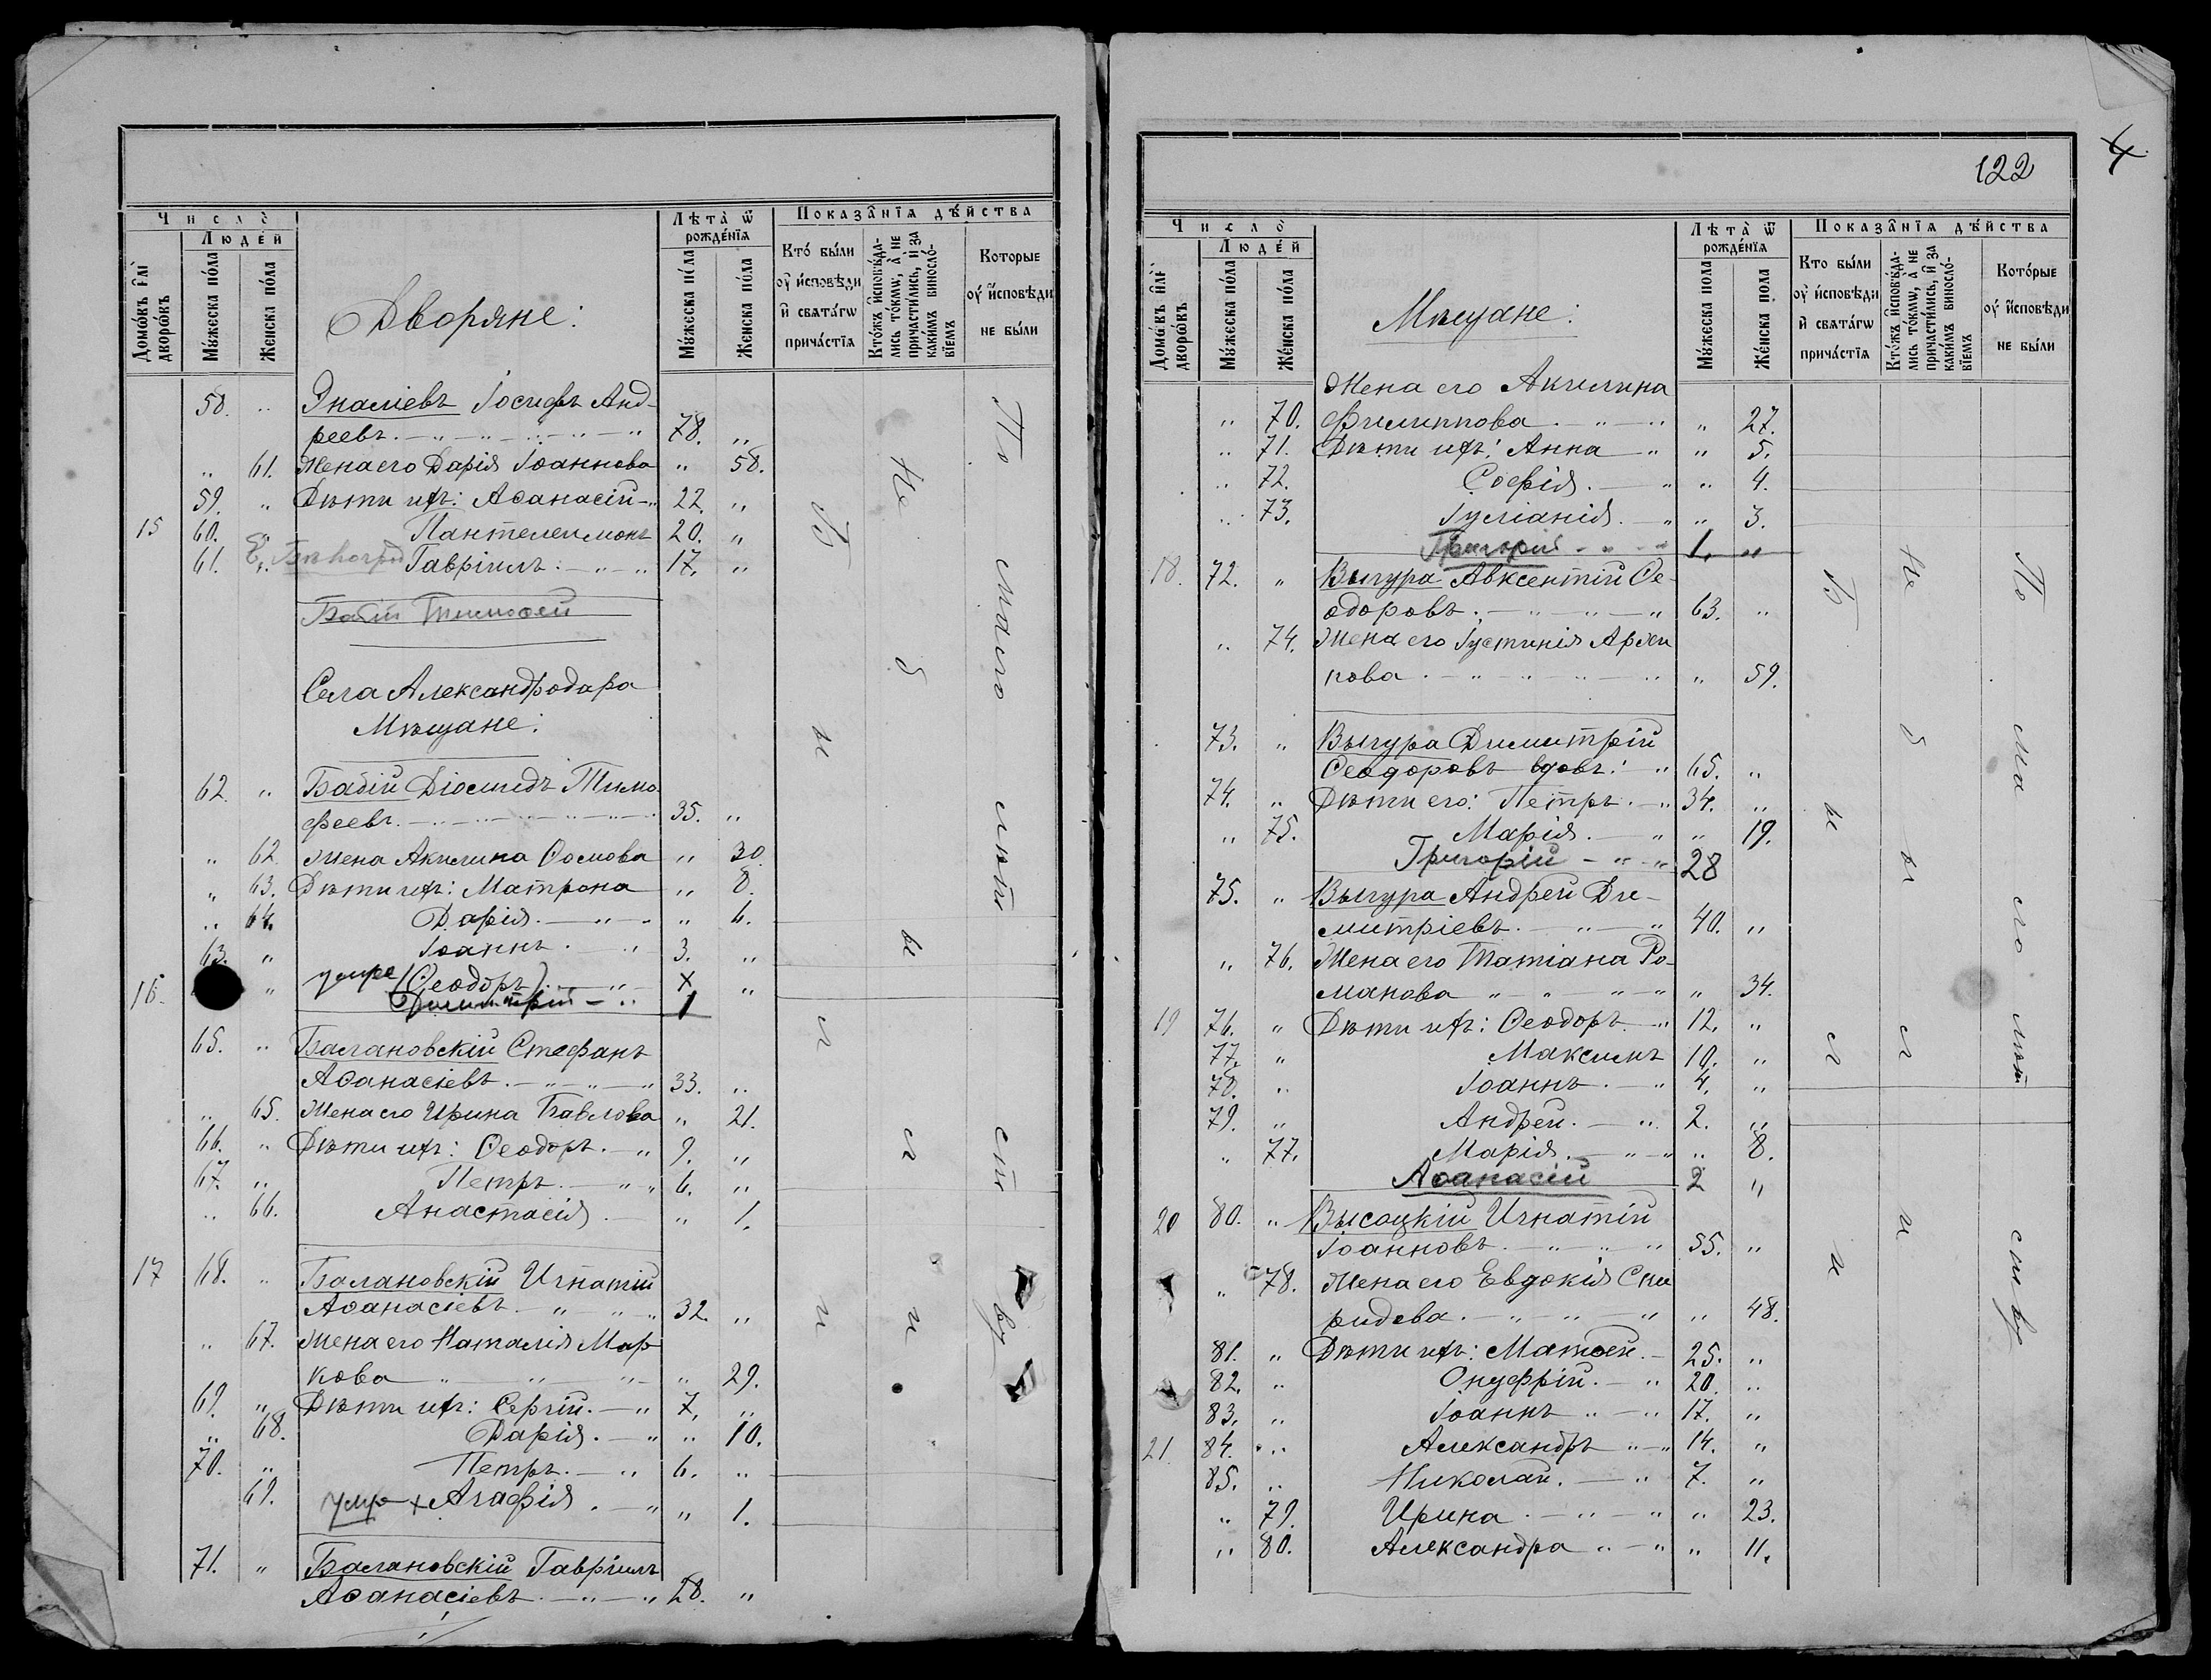 Число̀
Людéй
Домóвъ и҆лѝ дворóвъ
Мꙋ́жеска пóла
Женска пóла
Лѣта̀ ѿ рождéнїѧ
Мꙋ́жеска пóла
Женска пóла
Показа̑нїѧ дѣ́йства
Ктó бы́ли оу҆ и҆сповѣ́ди и҆ свѧта́гѡ прича́стїѧ
Ктóжъ и҆сповѣ́дались тóкмѡ, а҆ не причасти́лись, и҆ за каки́мъ винослóвїемъ
Которые оу҆ и҆сповѣ́ди не бы́ли
Дворяне:
58. „ Экаліевъ Іосифъ Анд-
реевъ. 78. „
„ 61. Жена его Дарія Іоаннова „ 58.
59. „ Дѣти ихъ: Аѳанасій 22. „
15 60. „ Пантелеимонъ 20. „
61. „ Гавріилъ 17. „
Бабій Тимоѳей
Села Александродара
Мѣщане:
62. „ Бабій Діомидъ Тимо
феевъ. 35. „
„ 62. Жена Акилина Ѳомова „ 30
„ 63. Дѣти ихъ: Матрона „ 8.
„ 64. Дарія. „ 6.
63. „ Іоаннъ. 3. „
16. „ умре (Ѳеодоръ) X „
Димитрій 1
65. „ Балановскій Стефанъ
Аѳанасіевъ. 33. „
„ 65. Жена его Ирина Павлова „ 21.
66. „ Дѣти ихъ: Ѳеодоръ. 9. „
67. „ Петръ. 6. „
„ 66. Анастасія „ 1.
17 68. „ Балановскій Игнатій
Аѳанасіевъ 32. „
„ 67. Жена его Наталія Мар
кова „ 29.
69. „ Дѣти ихъ: Сергій. 7. „
„ 68. Дарія. „ 10.
70. „ Петръ. 6. „
69. умр + Агафія. „ 1.
71. „ Балановскій Гавріилъ
Аѳанасіевъ 28. „
Были
Не были
По малолѣтству
4
122
Число̀
Людéй
Домóвъ и҆лѝ дворóвъ
Мꙋ́жеска пóла
Жéнска пóла
Лѣта̀ ѿ рождéнїѧ
Мꙋ́жеска пола
Жéнска пола
Показа̑нїѧ дѣ́йства
Кто бы́ли оу҆ и҆сповѣ́ди и҆ свѧта́гѡ прича́стїѧ
Ктóжъ и҆сповѣ́дались тóкмѡ, а҆ не причасти́лись, и҆ за каки́мъ винослóвїемъ
Котóрые оу҆ и҆сповѣ́ди не бы́ли
Мѣщане:
Жена его Акилина
„ 70. Филиппова „ 27.
„ 71. Дѣти ихъ: Анна „ 5.
„ 72. Софія. „ 4.
„ 73. Іуліанія. „ 3.
Григорій 1. „
18. 72. „ Выгура Авксентій Ѳе-
одоровъ. 63. „
„ 74. Жена его Іустинія Архи
пова „ 59.
73. „ Выгура Димитрій
Ѳеодоровъ вдовъ: 65. „
74. „ Дѣти его: Петръ. 34. „
„ 75. Марія. „ 19.
Григорій 28
75. „ Выгура Андрей Ди-
митріевъ. 40. „
„ 76. Жена его Татіана Ро-
манова „ 34.
19 76. „ Дѣти ихъ: Ѳеодоръ. 12. „
77. „ Максимъ 10. „
78. „ Іоаннъ. 4. „
79. „ Андрей. 2. „
„ 77. Марія. „ 8.
Аѳанасій 2 „
20 80. „ Высоцкій Игнатій
Іоанновъ. 55. „
„ 78. Жена его Евдокія Спи
ридова. „ 48.
81. „ Дѣти ихъ: Матѳей. 25. „
82. „ Онуфрій. 20 „
83. „ Іоаннъ 17. „
21. 84. „ Александръ 14. „
85. „ Николай. 7. „
„ 79. Ирина. „ 23.
„ 80. Александра „ 11.
Были
Не были
По малолѣтству